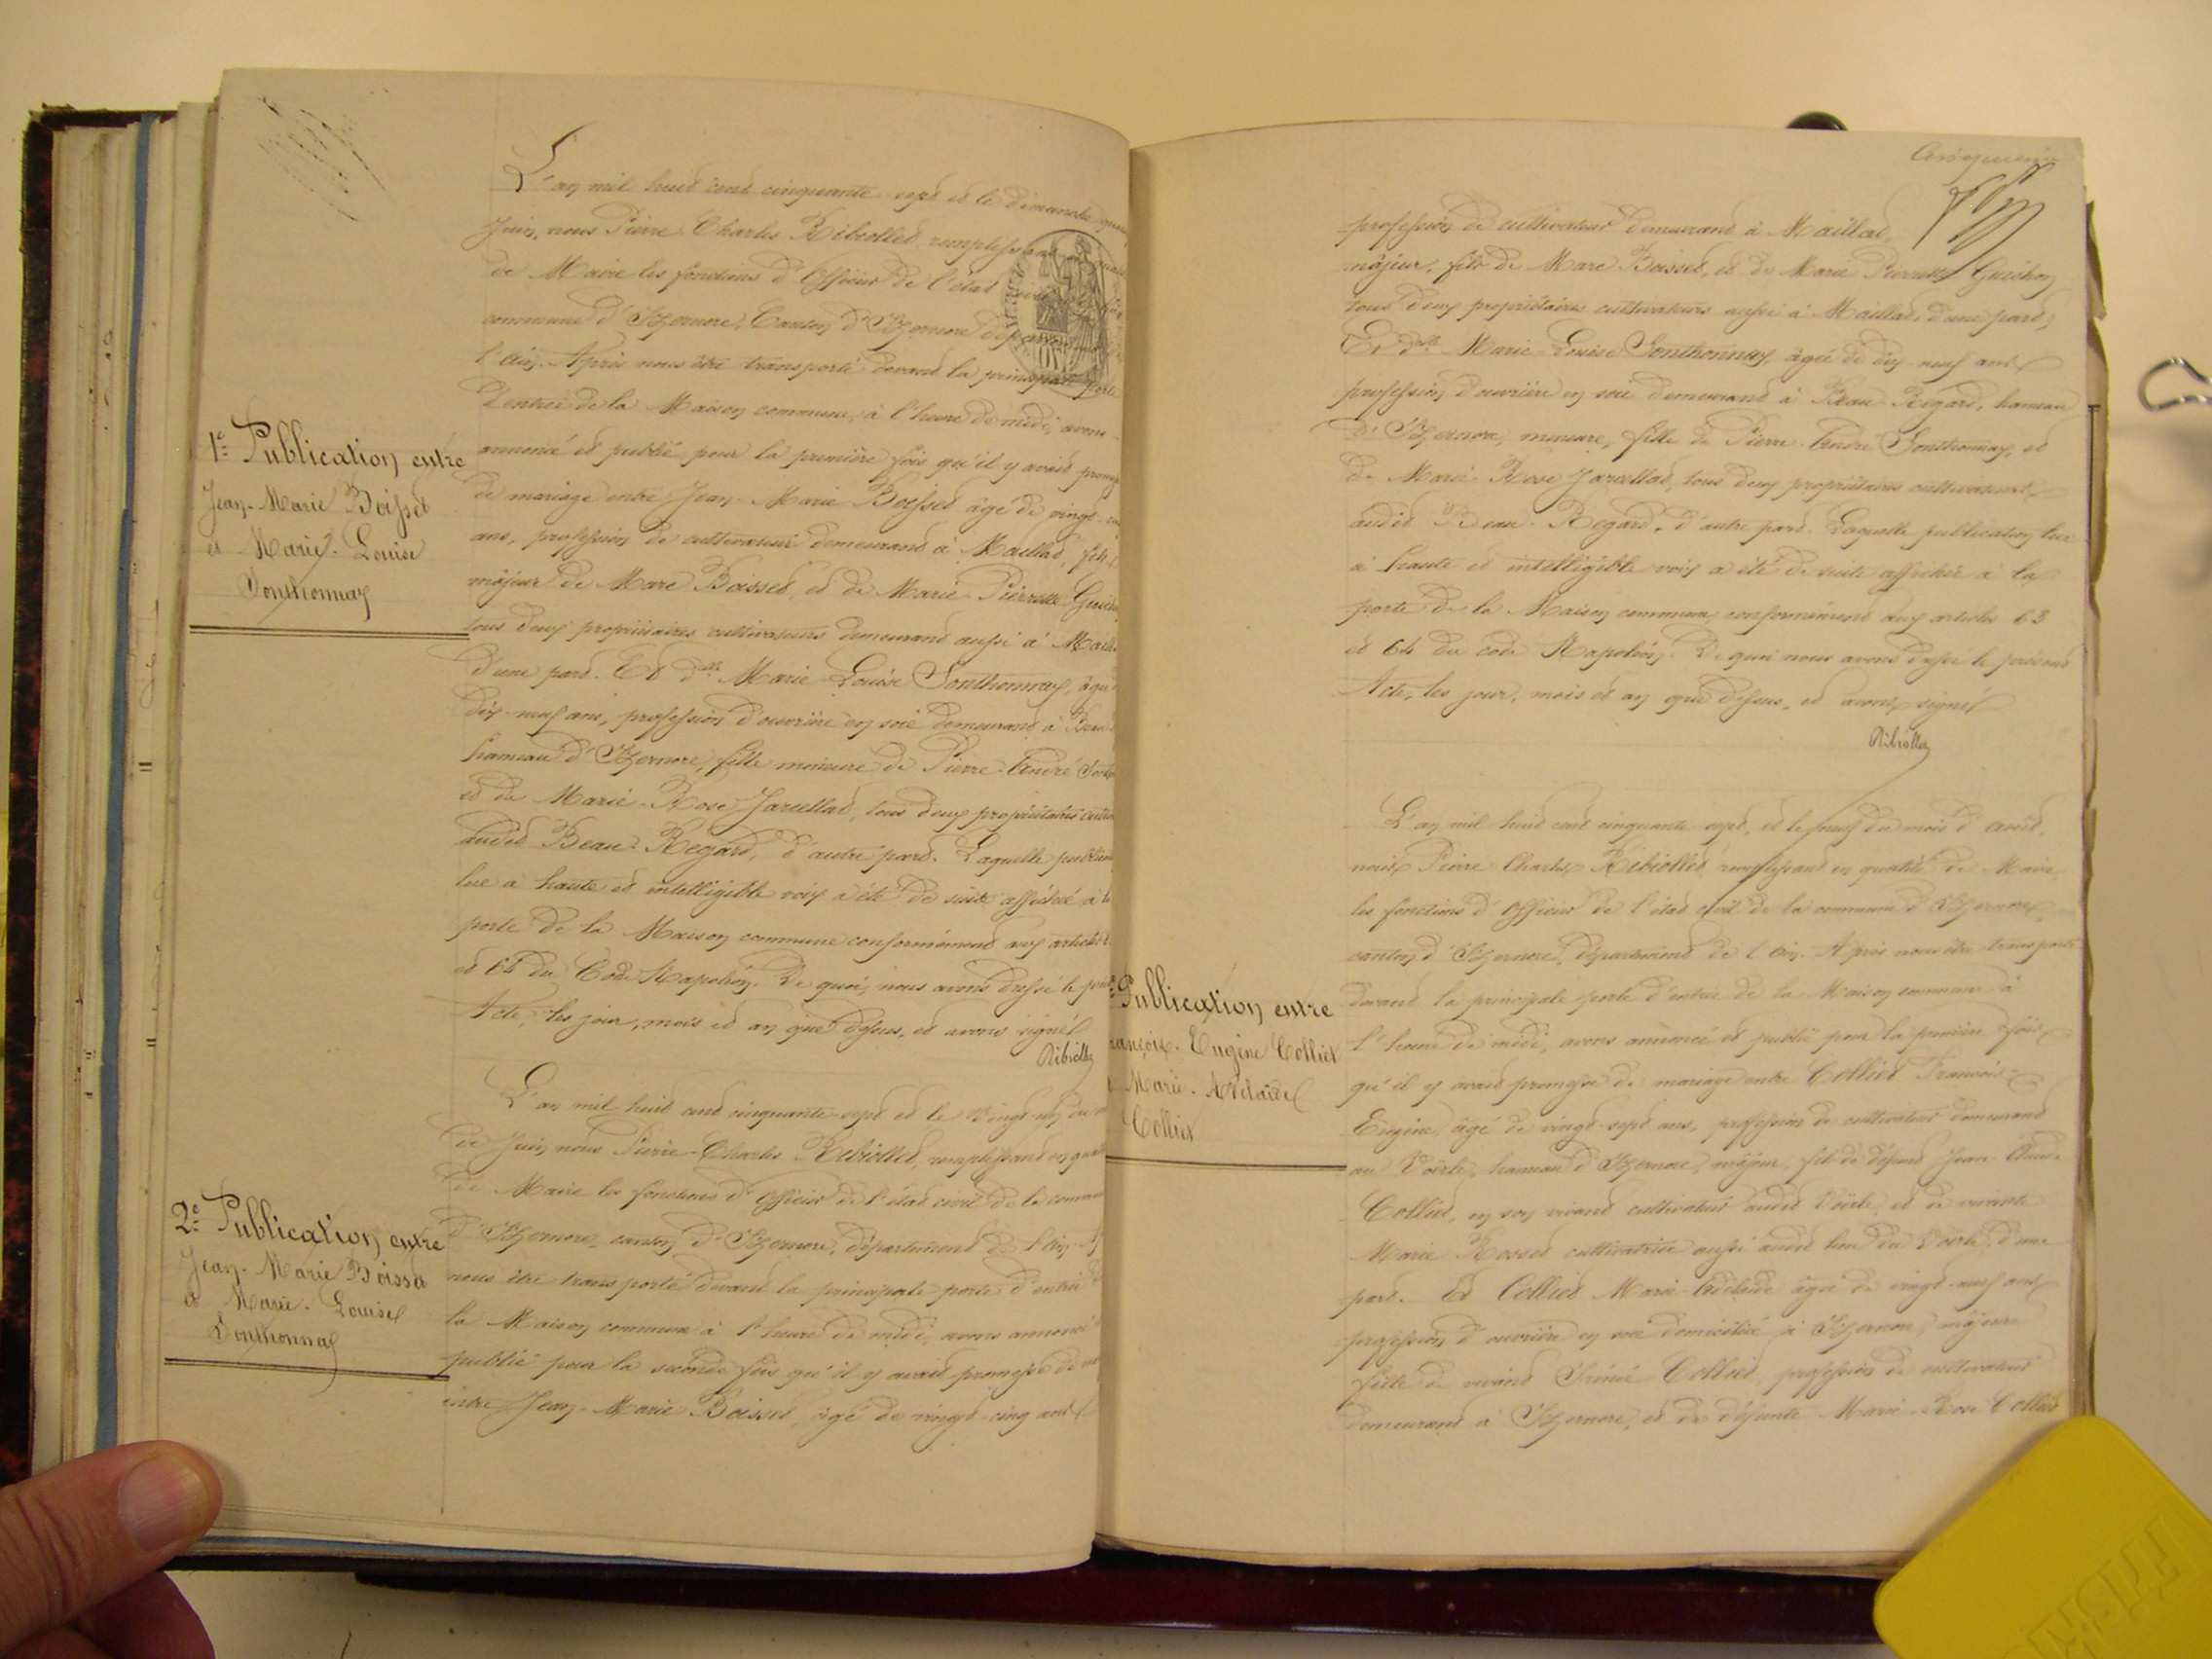 L'an mil huit cent cinquante sept et le Dimanche
Juin, nous Pierre Charles Ribiollet remplissant
de Maire les fonctions d'Officier de l'état
commune d'Izernore, Canton d'Izernore département
l'Ain. Après nous être transporté devant la principale porte
d'entrée de la Maison commune, à l'heure de midi, avons
annoncé et publié pour la première fois qu'il y avait
de mariage entre Jean-Marie Boisset âgé de vingt
ans, profession de cultivateur demeurant à Maillat, fils
majeur de Marc Boisset, et de Marie Pierrette
tous deux propriétaires cultivateurs demeurant aussi à
d'une part. Et dlle Marie Louise Sonthonnay, âgée
dix-neuf ans, profession d'ouvrière en soie demeurant à Beau
hameau d'Izernore, fille mineure de Pierre André
et de Marie-Rose Jarcellat, tous deux propriétaires
audit Beau-Regard, d'autre part. Laquelle
lue à haute et intelligible voix a été de suite affichée à
porte de la Maison commune conformément aux articles
et 64 du Code Napoléon. De quoi, nous avons dressé le
Acte, les jour, mois et an que dessus, et avons signé
Ribiollet
1e Publication entre
Jean-Marie Boisset
et Marie-Louise
Sonthonnay
L'an mil huit cent cinquante-sept et le Vingt-un
de Juin nous Pierre-Charles Ribiollet, remplissant en
de Maire les fonctions d'Officier de l'état civil de la
d'Izernore, canton d'Izernore, département de l'Ain.
nous être transporté devant la principale porte d'entrée
la Maison commune à l'heure de midi, avons annoncé
publié pour la seconde fois qu'il y avait promesse de
entre Jean-Marie Boisset, âgé de vingt-cinq ans
2e Publication entre
Jean-Marie Boisset
et Marie-Louise
Sonthonnay
profession de cultivateur demeurant à Maillat,
majeur, fils de Marc Boisset, et de Marie Pierrette Guichon
tous deux propriétaires cultivateurs aussi à Maillat, d'une part,
Et dlle Marie Louise Sonthonnay, âgée de dix-neuf ans
profession d'ouvrière en soie demeurant à Beau-Regard, hameau
d'Izernore, mineure, fille de Pierre-André Sonthonnay, et
de Marie-Rose Jarcellat, tous deux propriétaires cultivateurs
audit Beau-Regard, d'autre part. Laquelle publication lue
à haute et intelligible voix a été de suite affichée à la
porte de la Maison commune conformément aux articles 63
et 64 du code Napoléon. De quoi nous avons dressé le présent
Acte, les jour, mois et an que dessus, et avons signé
Ribiollet
L'an mil huit cent cinquante sept, et le neuf du mois d'août,
nous Pierre Charles Ribiollet remplissant en qualité de Maire
les fonctions d'Officier de l'état civil de la commune d'Izernore
canton d'Izernore, département de l'Ain. Après nous être transporté
devant la principale porte d'entrée de la Maison commune à
l'heure de midi, avons annoncé et publié pour la première fois
qu'il y avait promesse de mariage entre Colliet François-
Eugène, âgé de vingt-sept ans, profession de cultivateur demeurant
au Voërle, hameau d'Izernore, majeur, fils de défunt Jean-Claude
Colliet, en son vivant cultivateur audit Voërle, et de vivante
Marie Rosset cultivatrice aussi audit lieu du Voërle, d'une
part. Et Colliet Marie-Adélaïde âgée de vingt-neuf ans
profession d'ouvrière en soie domiciliée à Izernore, majeure
fille de vivant Colliet profession de cultivateur
demeurant à Izernore, et de défunte Marie-Rose Colliet
Publication entre
François-Eugène Colliet
Marie-Adélaïde
Colliet